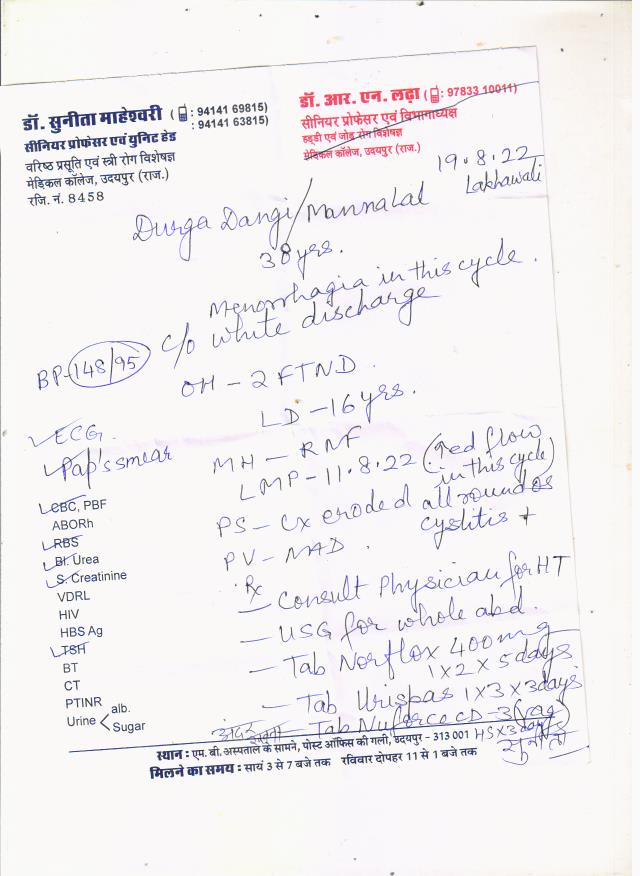 डॉ. सुनीता माहेश्वरी (📱: 94141 69815)
: 94141 63815)
सीनियर प्रोफेसर एवं युनिट हेड
वरिष्ठ प्रसूति एवं स्त्री रोग विशेषज्ञ
मेडिकल कॉलेज, उदयपुर (राज.)
रजि. नं. 8458
डॉ. आर. एन. लढ़ा (📱: 97833 10011)
सीनियर प्रोफेसर एवं विभागाध्यक्ष
हड्डी एवं जोड़ रोग विशेषज्ञ
मेडिकल कॉलेज, उदयपुर (राज.)
19.8.22
Lakhawali
Durga Dangi/Mannalal
38 yrs.
Menorrhagia in this cycle.
c/o white discharge
BP-148/95
OH - 2 FTND.
LD - 16 yrs.
ECG.
Pap's smear
MH - RNF
LMP - 11.8.22 (↑ed flow
in this cycle)
PS - Cx eroded all round os
cystitis +
PV - NAD.
CBC, PBF
ABORh
RBS
Bl. Urea
S. Creatinine
VDRL
HIV
HBS Ag
TSH
BT
CT
PTINR
Urine < alb.
Sugar
Rx
- Consult Physician for HT
- USG for whole abd.
- Tab Norflox 400 mg
1 x 2 x 5 days
- Tab Urispas 1 x 3 x 3 days
अंदर रखना - Tab Nuforce CD - 3 (vag)
HS x 3 days
सुनीता
स्थान : एम. बी. अस्पताल के सामने, पोस्ट ऑफिस की गली, उदयपुर - 313 001
मिलने का समय : सायं 3 से 7 बजे तक रविवार दोपहर 11 से 1 बजे तक